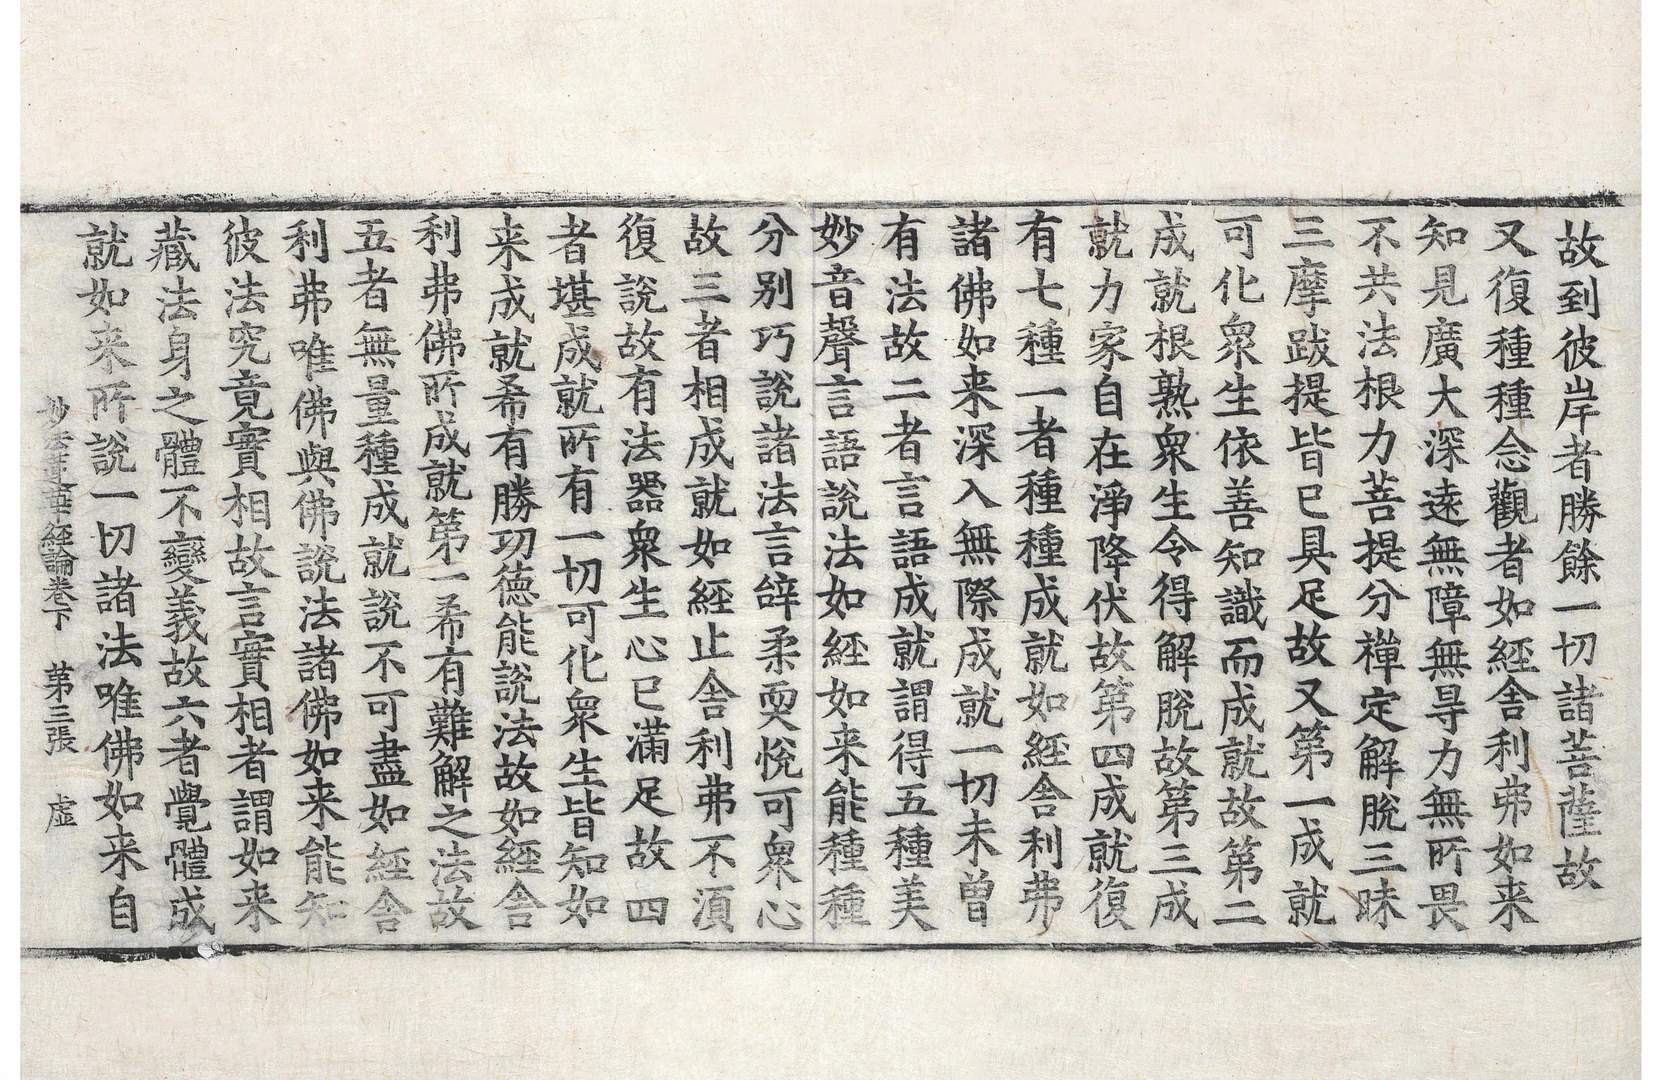 故到彼岸者勝餘一切諸菩薩故
又復種種念觀者如經舍利弗如来
知見廣大深遠無障無㝵力無所畏
不共法根力菩提分禪定解脫三昧
三摩跋提皆已具足故又第一成就
可化衆生依善知識而成就故第二
成就根熟衆生令得解脫故第三成
就力家自在淨降伏故第四成就復
有七種一者種種成就如經舍利弗
諸佛如来深入無際成就一切未曾
有法故二者言語成就謂得五種美
妙音聲言語說法如經如来能種種
分別巧說諸法言辝柔耎悅可衆心
故三者相成就如經止舍利弗不湏
復說故有法器衆生心已滿足故四
者堪成就所有一切可化衆生皆知如
来成就希有勝功德能說法故如經舍
利弗佛所成就第一希有難解之法故
五者無量種成就說不可盡如經舍
利弗唯佛與佛說法諸佛如来能知
彼法究竟實相故言實相者謂如来
藏法身之體不變義故六者覺體成
就如来所說一切諸法唯佛如来自
妙法蓮華經論卷下　第三張　虛